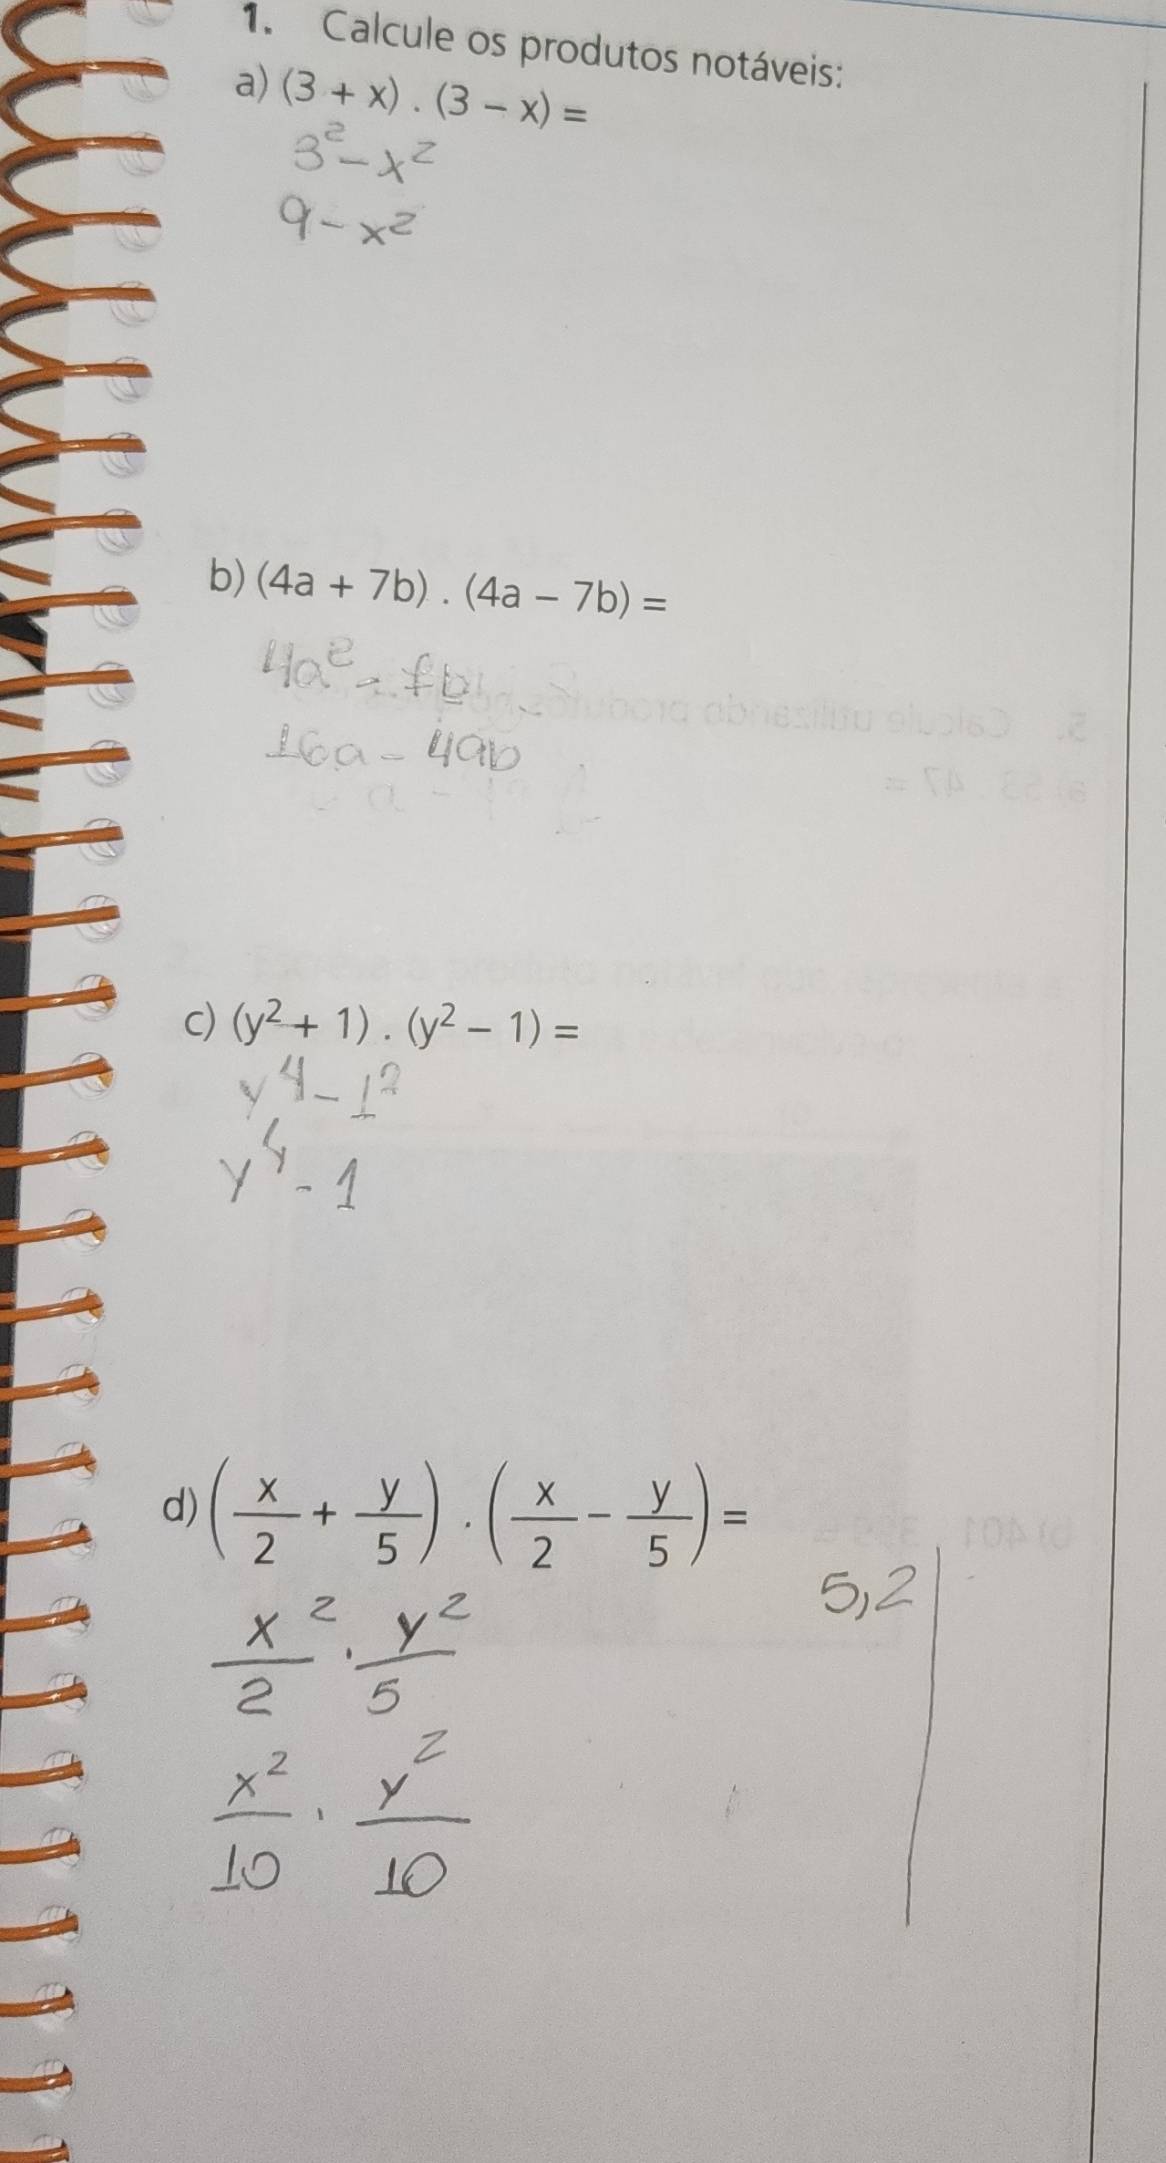 1. Calcule os produtos notáveis:
a) (3 + x) . (3 – x) =
3² – x²
9 – x²
b) (4a + 7b) . (4a – 7b) =
4a² - 7b
16a - 49b
c) (y² + 1) . (y² – 1) =
y⁴ - 1²
y⁴ - 1
d) (x/2 + y/5) . (x/2 – y/5) =
5,2
x²/2 . y²/5
x²/10 . y²/10